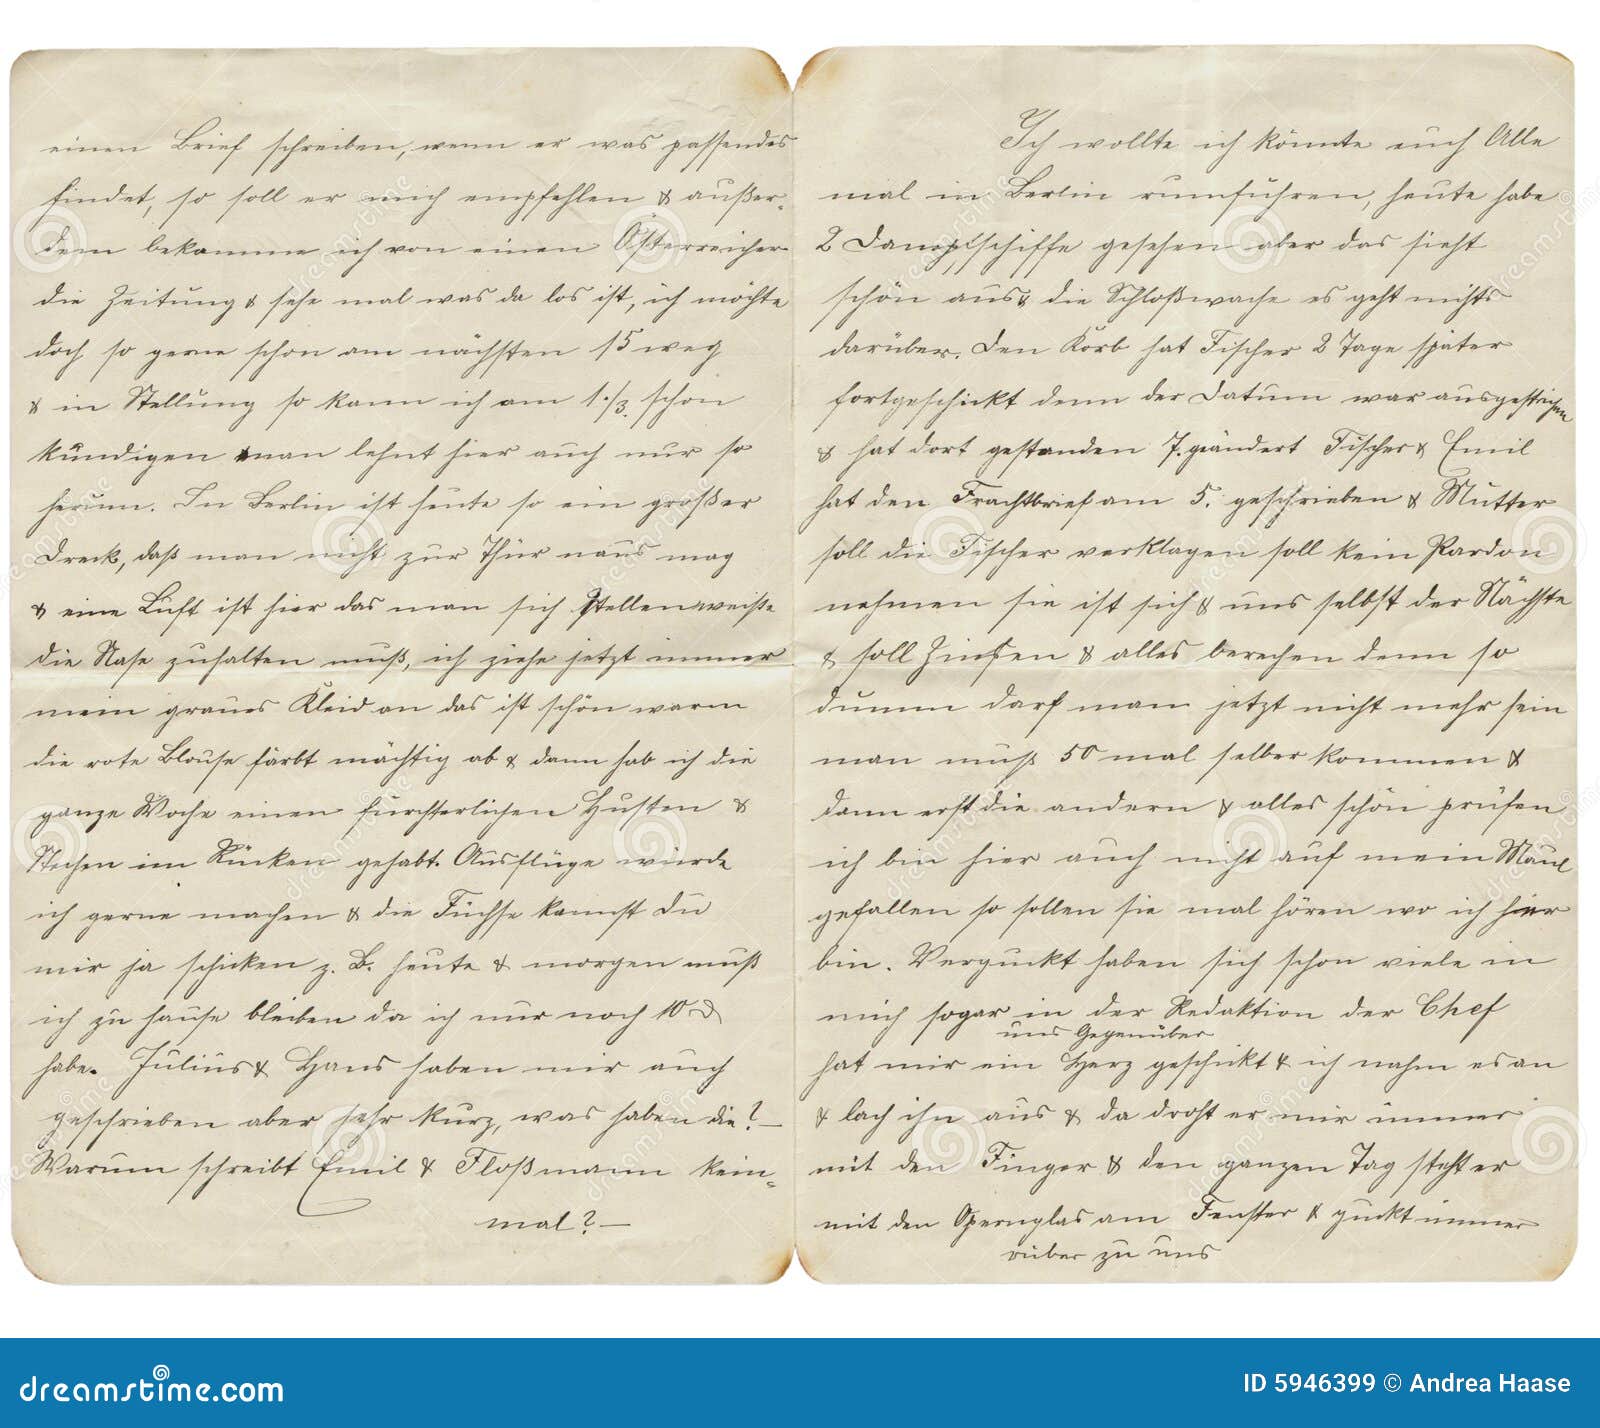 einen Brief schreiben, wenn er was passendes
findet, so soll er mich empfehlen & außer-
dem bekomme ich von einen Österreicher
die Zeitung & sehe mal was da los ist, ich möchte
doch so gerne schon am nächsten 15 weg
& in Stellung so kann ich am 1./3. schon
kündigen man lehnt hier auch nur so
herum. In Berlin ist heute so ein großer
Dreck, daß man nicht zur Thür naus mag
& eine Luft ist hier das man sich stellenweiße
die Nase zuhalten muß, ich ziehe jetzt immer
mein graues Kleid an das ist schön warm
die rote Blouse färbt mächtig ab & dann hab ich die
ganze Woche einen furchterlichen Husten &
Stechen im Rücken gehabt. Ausflüge würde
ich gerne machen & die Füchse kannst Du
mir ja schicken z. B. heute & morgen muß
ich zu hause bleiben da ich nur noch 10 ₰
habe. Julius & Hans haben mir auch
geschrieben aber sehr kurz, was haben die? —
Warum schreibt Emil & Floßmann kein-
mal? —
Ich wollte ich könnte euch Alle
mal in Berlin rumführen, heute habe
2 Dampfschiffe gesehen aber das sieht
schön aus & die Schloßwache es geht nichts
darüber. Den Korb hat Fischer 2 Tage später
fortgeschickt denn der Datum war ausgestrichen
& hat dort gestanden 7. geändert Fischer & Emil
hat den Frachtbrief am 5. geschrieben & Mutter
soll die Fischer verklagen soll kein Pardon
nehmen sie ist sich & uns selbst der Nächste
& soll Zinsen & alles berechen denn so
dumm darf man jetzt nicht mehr sein
man muß 50 mal selber kommen &
dann erst die andern & alles schön prüfen
ich bin hier auch nicht auf mein Maul
gefallen so sollen sie mal hören wo ich hier
bin. Verguckt haben sich schon viele in
mich sogar in der Redaktion der Chef
uns Gegenüber
hat mir ein Herz geschickt & ich nahm es an
& lach ihn aus & da droht er mir immer
mit den Finger & den ganzen Tag steht er
mit den Opernglas am Fenster & guckt immer
rüber zu uns
dreamstime.com
ID 5946399 © Andrea Haase